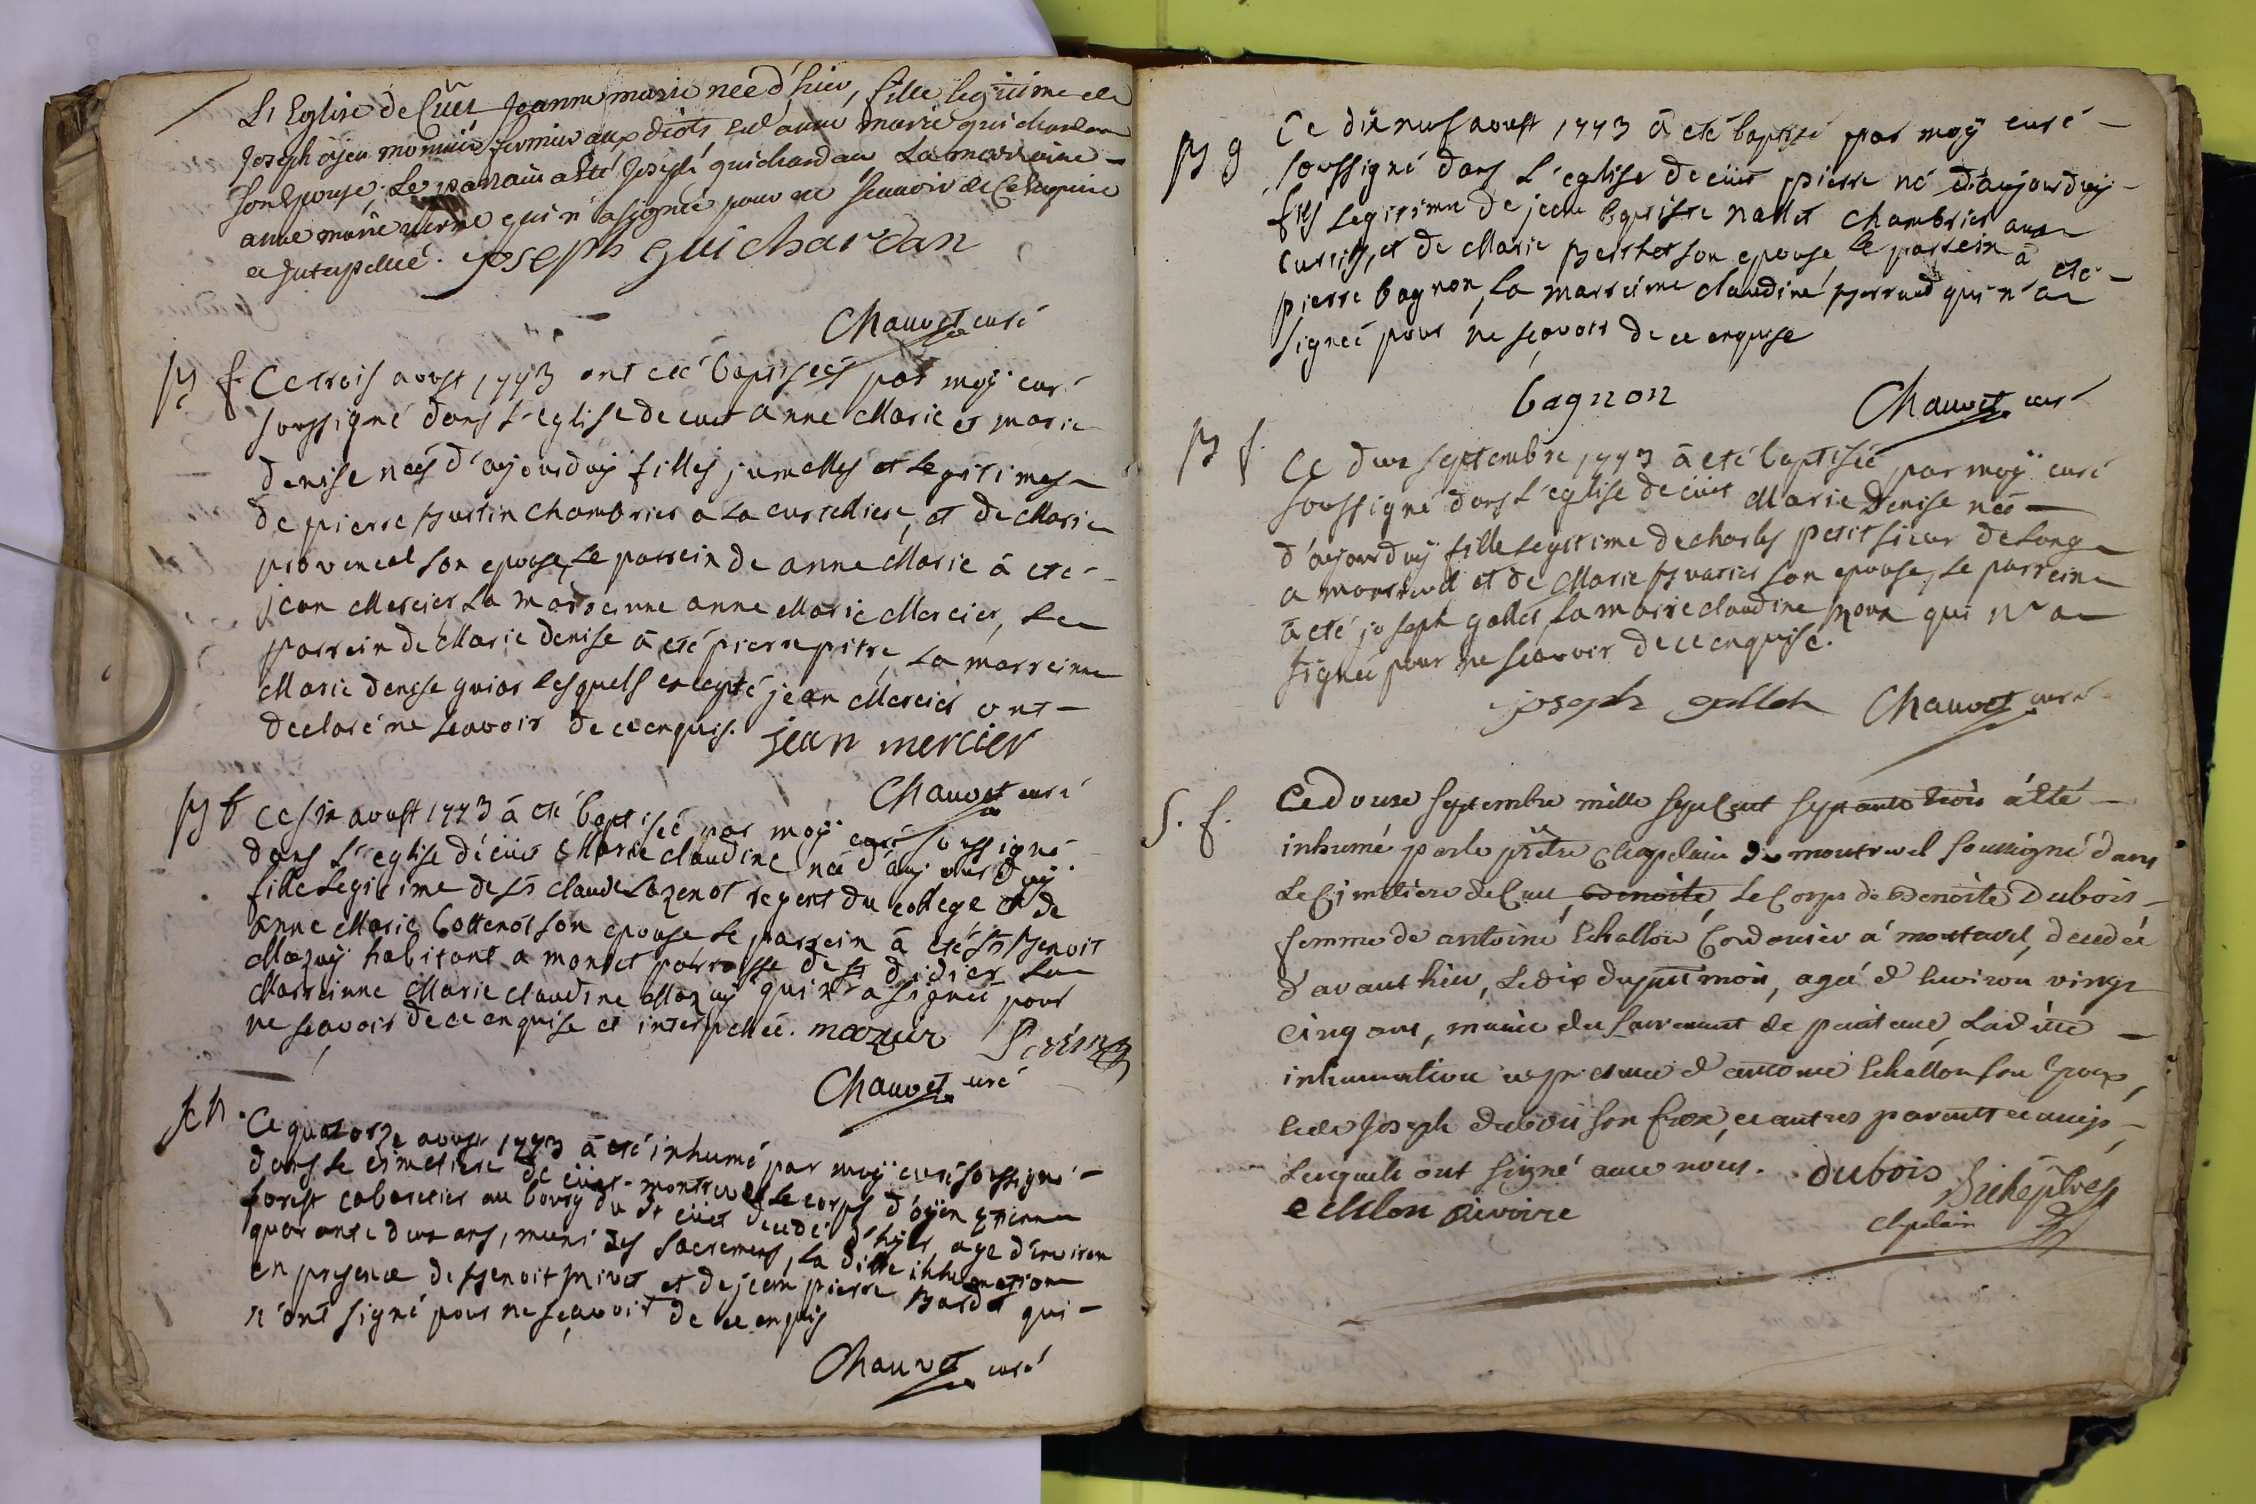 L'Eglise de Cuet Jeanne marie née d'hier, fille legitime de
Joseph oyen monnier fermier aux diots, et d'anne marie guichardan
son Epouse, Le parrain a Eté Joseph guichardan La marraine
anne marie verne qui n'a signée pour ne scavoir de ce enquise
et Interpellée. joseph guichardan
Chauvet curé
B f. Ce trois aoust 1773 ont eté baptiseés par moÿ curé
soussigné dans l'eglise de cuet anne Marie et marie
denise neés d'aujourduÿ filles jumelles et legitimes
de pierre Burtin chambrier a la curtelliere, et de Marie
provencal son epouse, le parrein de anne Marie à eté
jean Mercier, La marreinne anne Marie Mercier, le
parrein de Marie denise à eté pierre pitre, La marreinne
Marie denise guion lesquels excepté jean Mercier ont
declaré ne scavoir de ce enquis. jean mercier
Chauvet curé
B f Ce six aoust 1773 à eté baptiseé par moÿ curé soussigné
dans l'eglise de cüet Marie claudine neé d'aujourduÿ
fille legitime de sr claude Lozenot regent du college et de
anne Marie bottenot son epouse, le parrein à eté sr Benoit
Mazuÿ habitant a montet parroisse de st didier La
Marreinne Marie claudine Mazuÿ qui n'a signeé pour
ne scavoir de ce enquise et interpelleé. mazuir
Chauvet curé
Ce quatorze aoust 1773 à eté inhumé par moÿ curé soussigné
dans le cimetiere de cüet-montrevel le corps d'oÿen Etienne
forest cabaretier au bourg du dt cüet decedé d'hÿer, age d'environ
quarante deux ans, muni des sacremens, la ditte inhumation
en presence de Benoit Nivet et de jean pierre Bardet qui
n'ont signé pour ne scavoir de ce enquis
Chauvet curé
B g Ce dix neuf aoust 1773 à eté baptisé par moÿ curé
soussigné dans l'eglise de cüet pierre né d'aujourduÿ
fils legitime de jean baptiste nallet chambrier aux
curtils, et de Marie Berthet son epouse le parrein à eté
pierre bagnon, La marreinne claudine Berraud qui n'a
signeé pour ne scavoir de ce enquise
bagnon Chauvet curé
B f. Ce deux septembre 1773 à eté baptiseé par moÿ curé
soussigné dans l'eglise de cüet Marie Denise neé
d'aujourduÿ fille legitime de charles petit sieur de long
a montrevel et de Marie Buatier son epouse, le parrein
à eté joseph gallet, La marreine claudine qui n'a
signeé pour ne scavoir de ce enquise.
joseph gallet Chauvet curé
S. f. Ce Douze septembre mille sept Cent septante trois à Eté
inhumé par le prêtre chapelain de montrevel soussigné dans
Le Cimetiere de Cuet, Benoite, Le Corps de Benoite Dubois
femme de antoine Echallon Cordonier à montrevel, decedée
d'avant hier, Le dix du psnt mois, ageé d'Environ vingt
cinq ans, munie des sacrement de penitence, Laditte
inhumation en presence d'antoine Echallon son Epoux,
et de Joseph dubois son frere, et autres parents et amis,
Lesquels ont signé avec nous. dubois
echalon rivoire chapelain